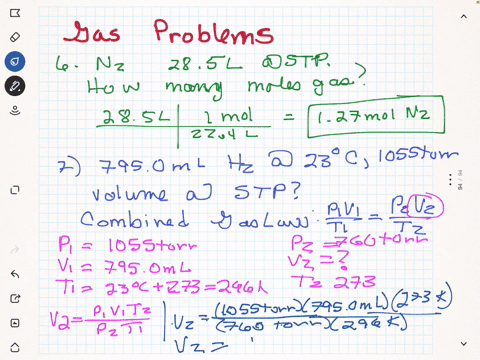 Gas Problems
6. N2 28.5L @STP.
How many moles gas?
28.5L | 1 mol / 22.4 L = 1.27mol N2
7) 795.0mL H2 @ 23°C, 1055torr
volume @ STP?
Combined Gas Law: P1V1/T1 = P2V2/T2
P1 = 1055torr P2 = 760torr
V1 = 795.0mL V2 = ?
T1 = 23°C + 273 = 296K T2 273
V2 = P1V1T2/P2T1 | V2 = (1055torr)(795.0mL)(273K)/(760 torr)(296K)
V2 =